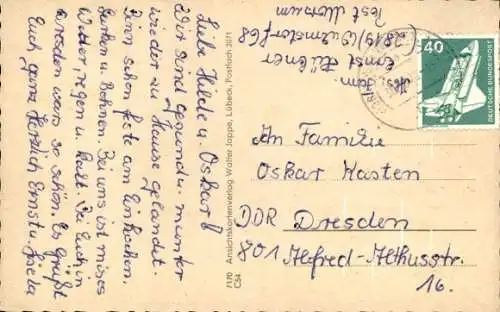 Liebe Hilde u. Oskar!
Wir sind gesund u. munter
wieder zu Hause gelandet.
Sind schon fete am Einkochen.
Gurken u. Bohnen. Bei uns ist mieses
Wetter regen u. kalt. Bei Euch in
Dresden wars so schön. Es Grüßt
Euch ganz Herzlich Ernst u. Gisela
7170 Ansichtskartenverlag Walter Jappe, Lübeck, Postfach 3071
C54
Fam.
Ernst Hübner
2819
Post
40
DEUTSCHE BUNDESPOST
An Familie
Oskar Kasten
DDR Dresden
801 Alfred-Althusstr.
16.